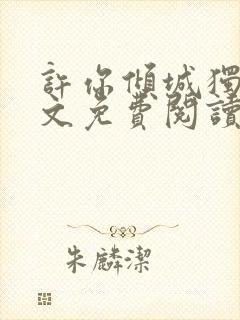 許你傾城獨
文免費閱讀
朱麟潔